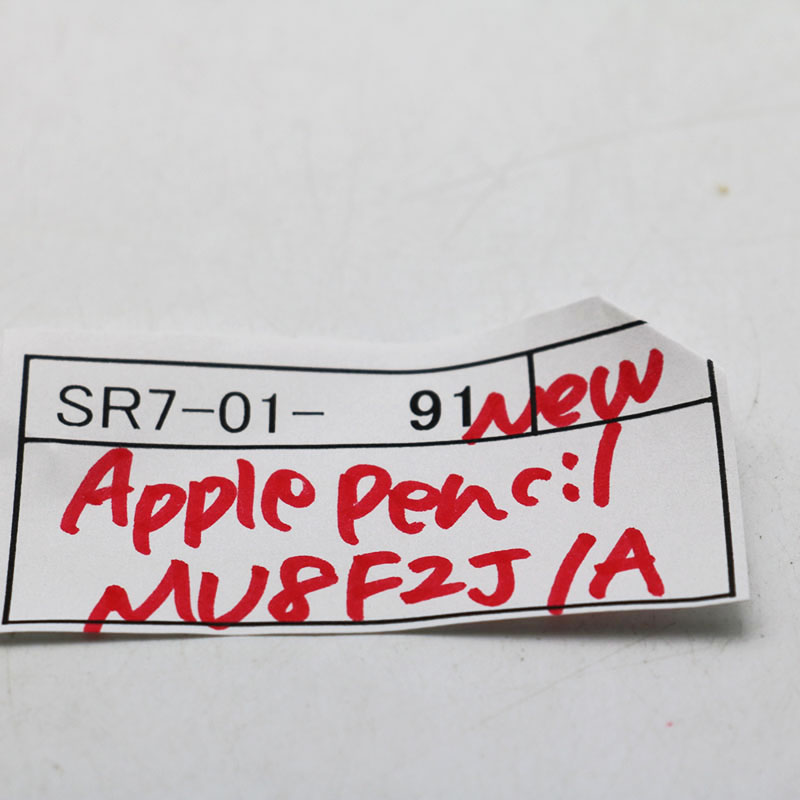 SR7-01- 91 New
Apple Pencil
MU8F2J/A